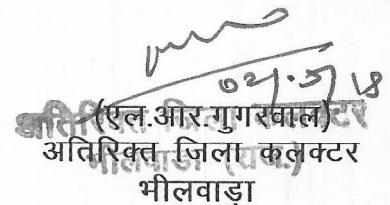 02/5/18
(एल.आर.गुगरवाल)
अतिरिक्त जिला कलक्टर
भीलवाड़ा